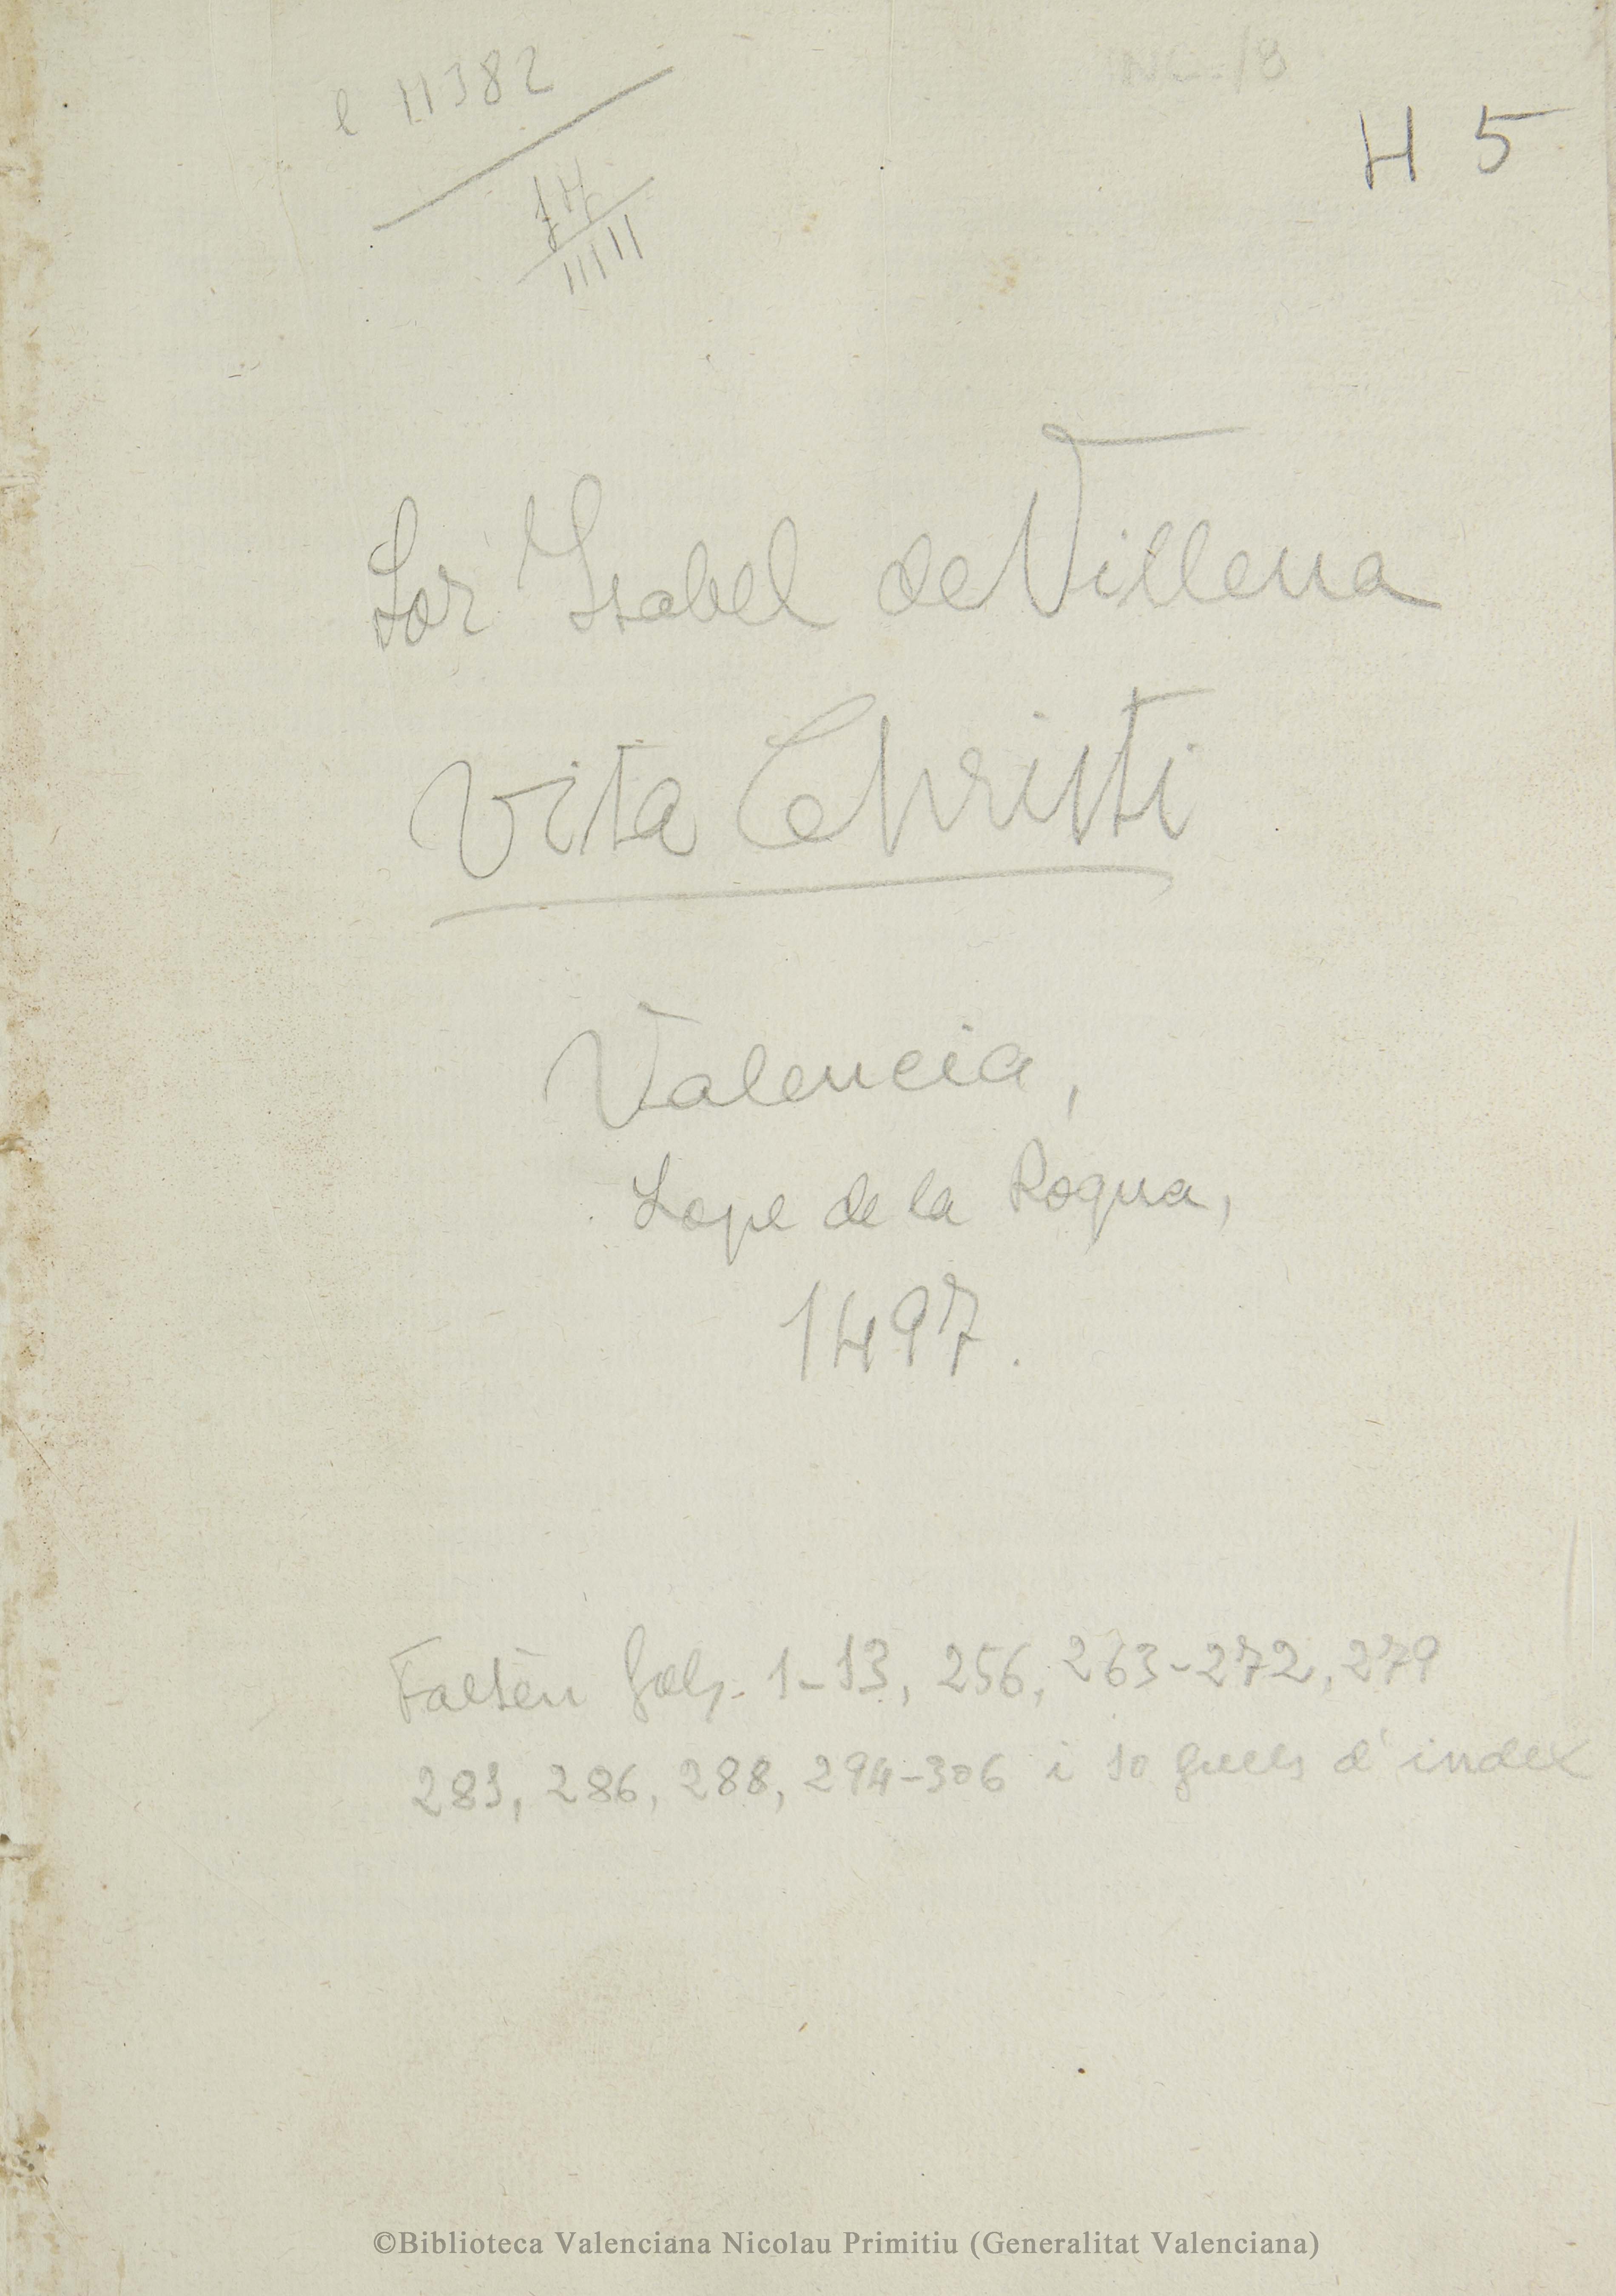 l 11382
INC-/8
H 5
11111
Sor Isabel de Villena
Vita Christi
Valencia,
Lope de la Roqua,
1497.
Faltèn fols. 1-13, 256, 263-272, 279
281, 286, 288, 294-306 i 10 fulls d'index
©Biblioteca Valenciana Nicolau Primitiu (Generalitat Valenciana)